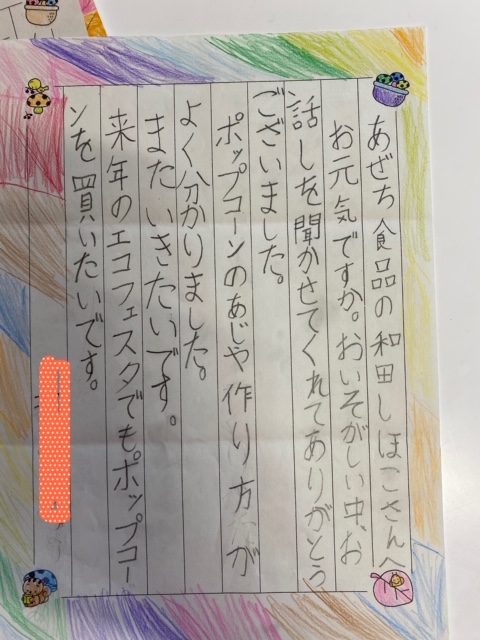 あぜち食品の和田しほこさんへ
お元気ですか。おいそがしい中、お
話しを聞かせてくれてありがとう
ございました。
ポップコーンのあじや作り方が
よく分かりました。
またいきたいです。
来年のエコフェスタでも。ポップコー
ンを買いたいです。